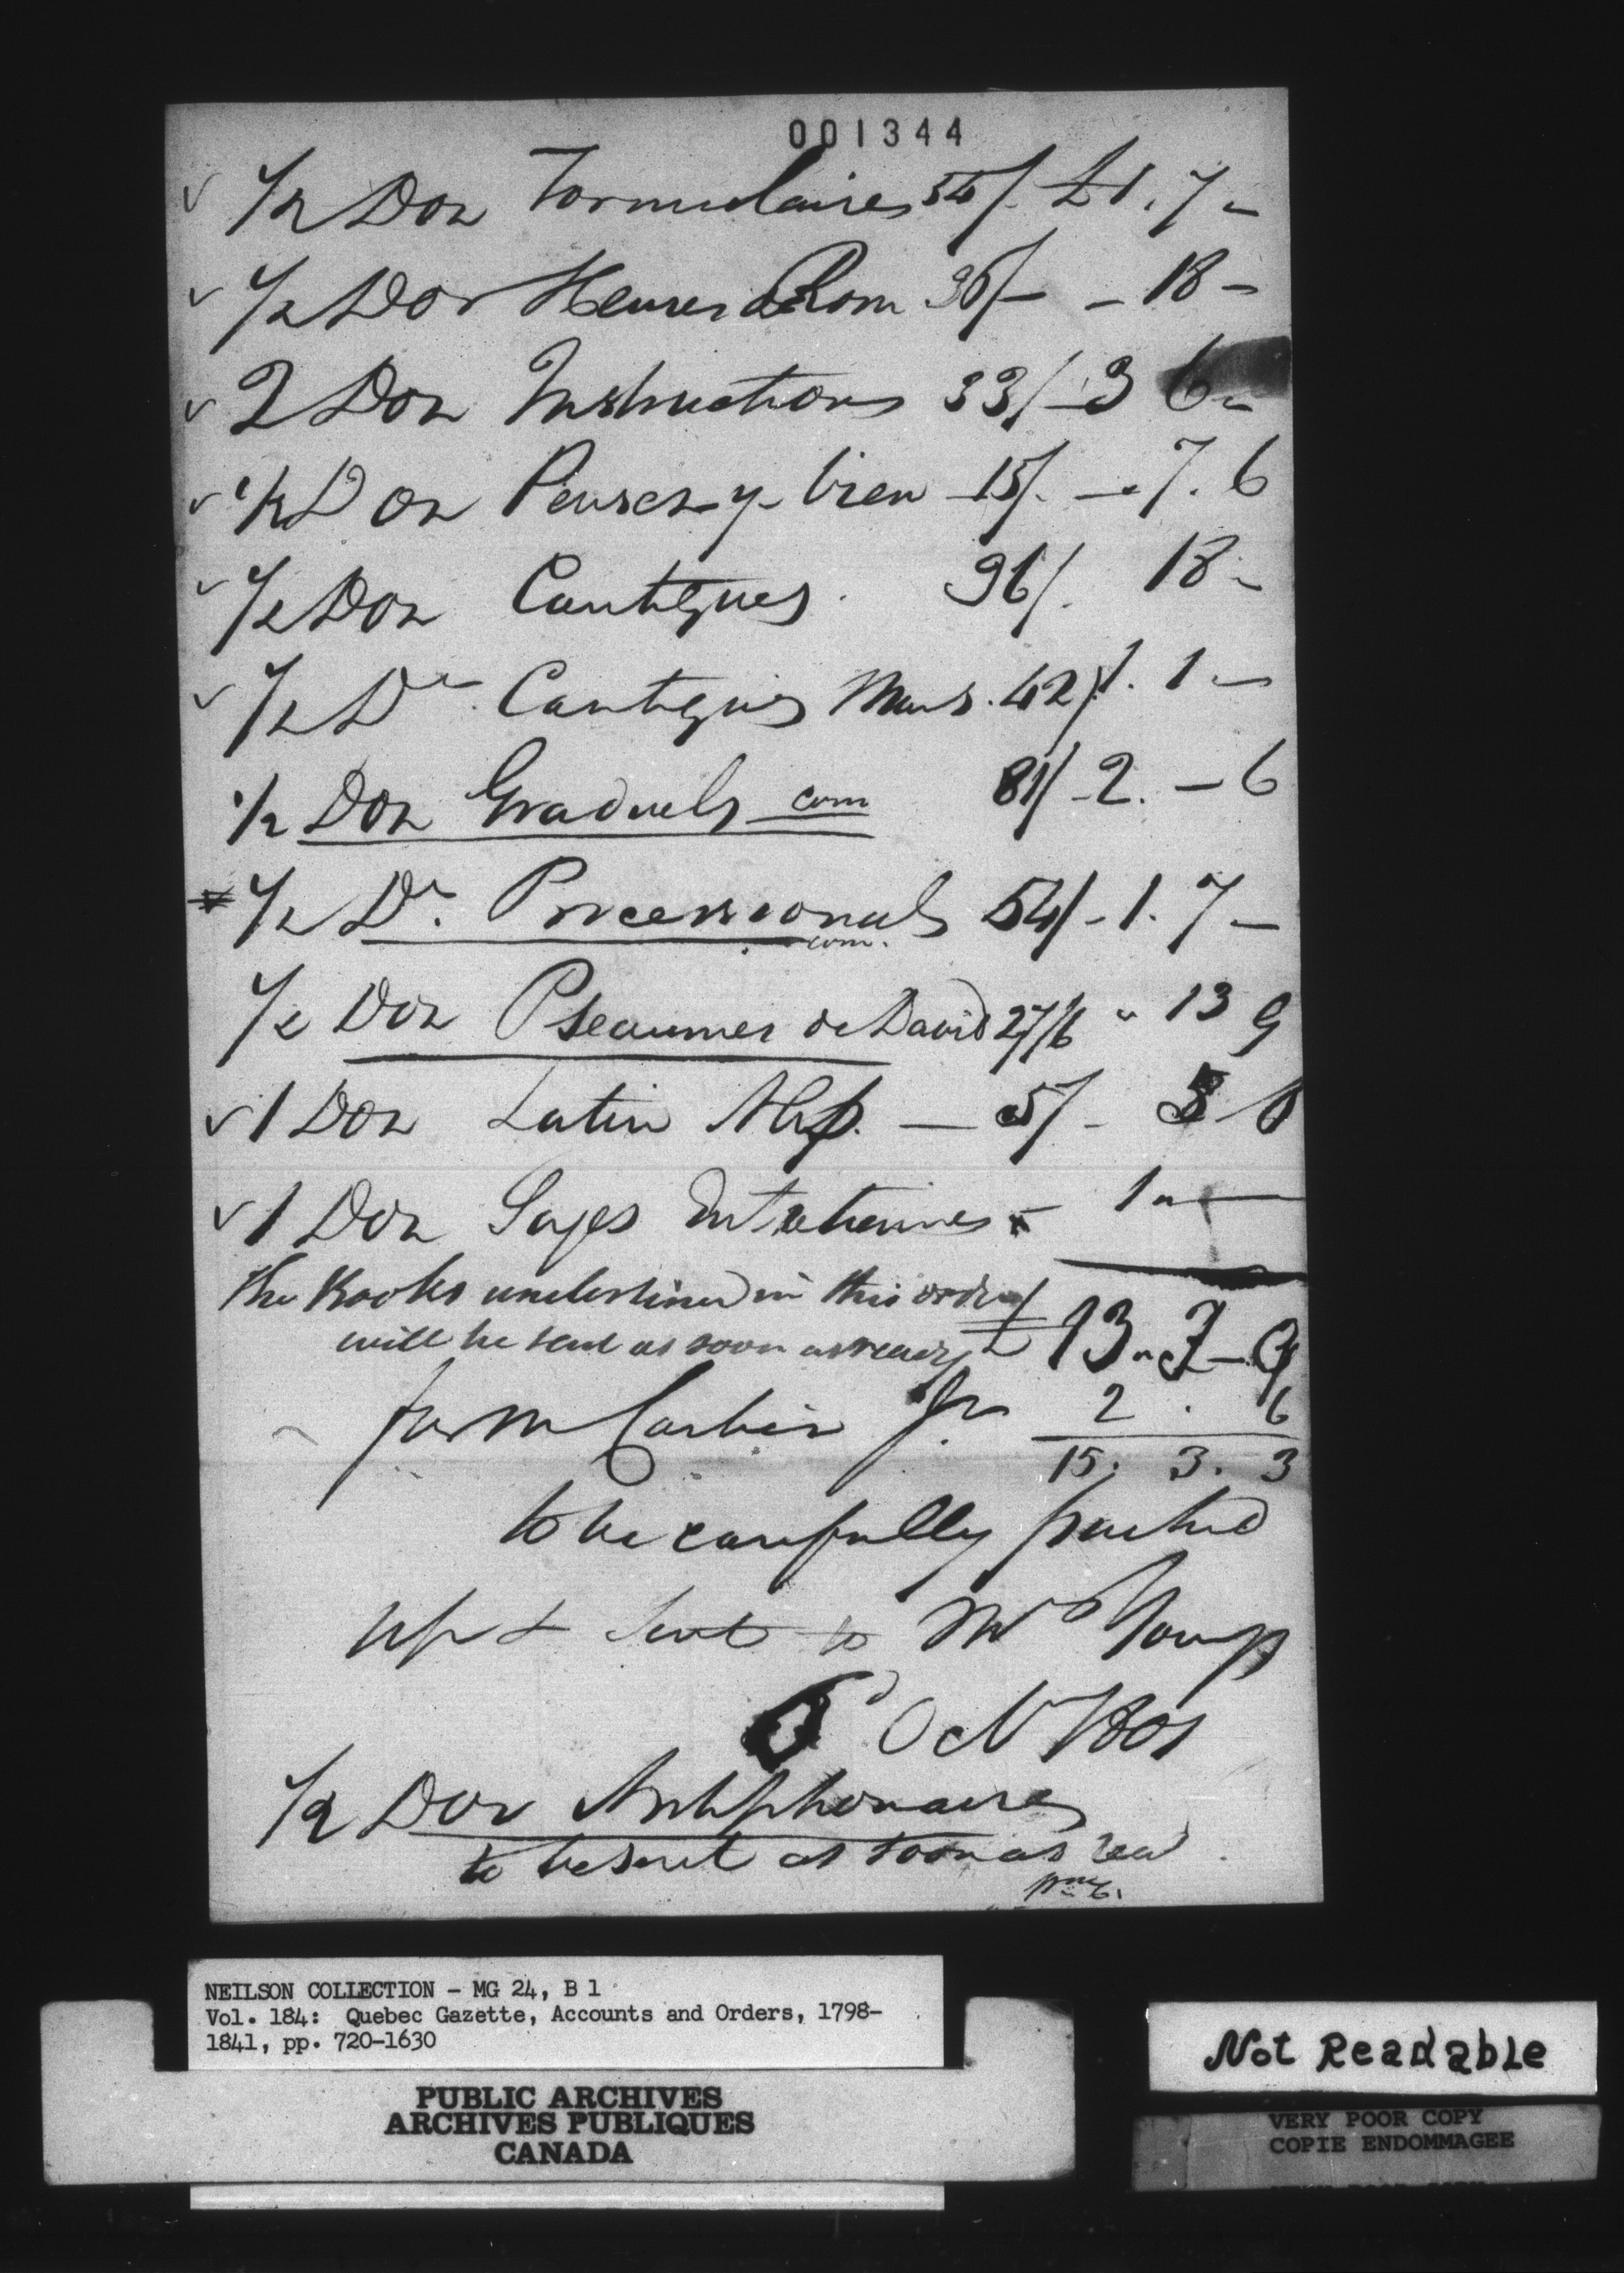 001344
1/2 Doz Formulaires 54/- £1. 7 -
1/2 Doz Heures d Rom 36/- - 18 -
2 Doz Instructions 33/- 3 6 -
1/2 Doz Pensez-y-bien 15/- - 7. 6
1/2 Doz Cantiques 36/. 18 -
1/2 Dr Cantiques Mars. 42/ 1. 1 -
1/2 Doz Graduels com 81/- 2. - 6
1/2 Dr. Processionals 54/- 1. 7 -
com.
1/2 Doz Pseaumes de David 27/6 " 13 9
1 Doz Latin Alp. - 5/- 5
1 Doz Sages Entretiennes - 1 " -
The Books underlined in this order
will be sent as soon as ready £ 13 " 2 - 9
for M Corbin Jr 2 . 6
15. 3. 3
to be carefully packed
up & sent to Mr Young
6 Oct 1801
1/2 Doz Antiphonaires
to be sent as soon as
NEILSON COLLECTION - MG 24, B 1
Vol. 184: Quebec Gazette, Accounts and Orders, 1798-
1841, pp. 720-1630
PUBLIC ARCHIVES
ARCHIVES PUBLIQUES
CANADA
Not Readable
VERY POOR COPY
COPIE ENDOMMAGEE